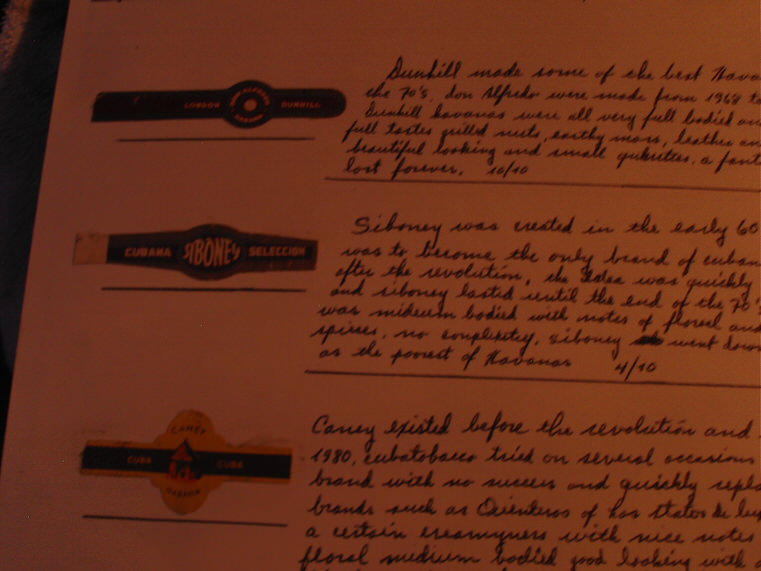 LONDON DON ALFREDO HABANA DUNHILL
Dunhill made some of the best Hava
the 70's. don Alfredo were made from 1968 to
Dunhill havanas were all very full bodied an
full tastes grilled nuts, earthy moss, leather an
beautiful looking and small qukettes. a fant
lost forever. 10/10
CUBANA SIBONEY SELECCION
Siboney was created in the early 60
was to become the only brand of cuban
after the revolution, the idea was quickly
and siboney lasted until the end of the 70's
was mideum bodied with notes of floral and
spices, no complexity, siboney went down
as the poorest of Havanas 4/10
CANEY
CUBA CUBA
HABANA
Caney existed before the revolution and
1980, cubatobacco tried on several occasions
brand with no success and quickly repla
brands such as of los statos de lux
a certain creamyness with nice notes
floral medium bodied good looking with a